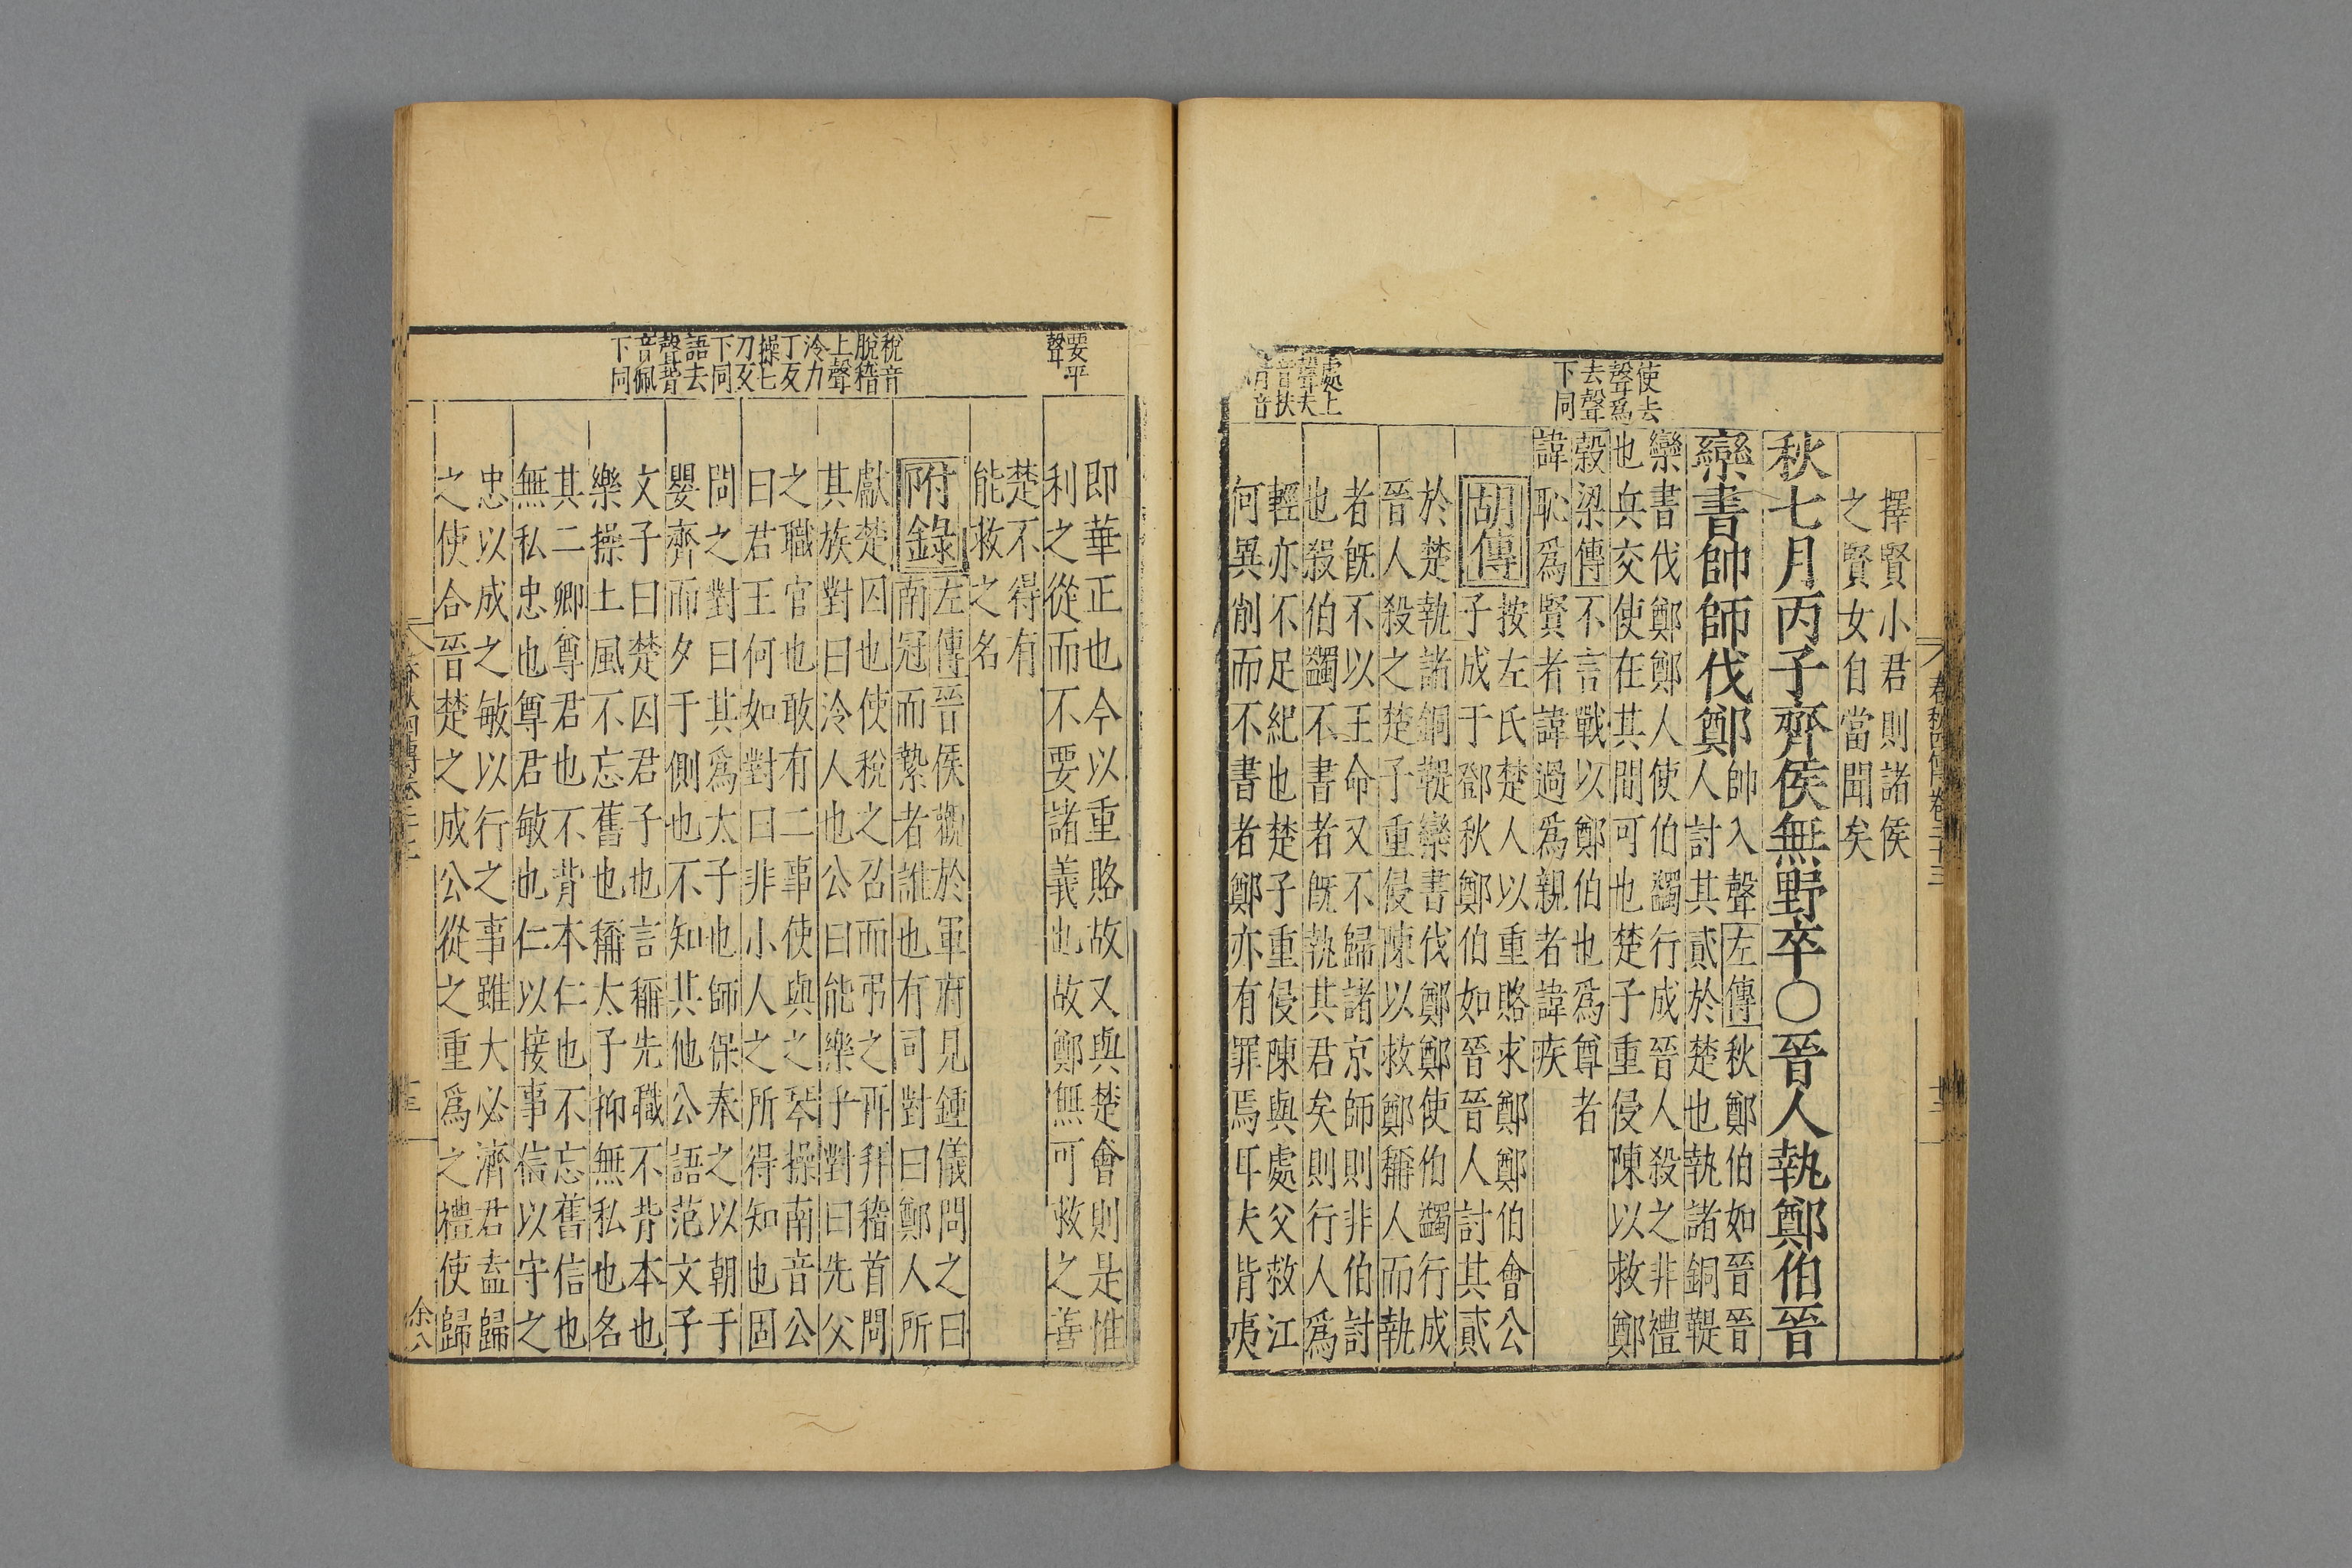 春秋四傳卷二十三
擇賢小君則諸侯
之賢女自當聞矣
秋七月丙子齊侯無野卒○晉人執鄭伯晉
欒書帥師伐鄭
帥入聲左傳秋鄭伯如晉晉
人討其貳於楚也執諸銅鞮
欒書伐鄭鄭人使伯蠲行成晉人殺之非禮
也兵交使在其間可也楚子重侵陳以救鄭
穀梁傳不言戰以鄭伯也為尊者
諱恥為賢者諱過為親者諱疾
胡傳
按左氏楚人以重賂求鄭鄭伯會公
子成于鄧秋鄭伯如晉晉人討其貳
於楚執諸銅鞮欒書伐鄭鄭使伯蠲行成
晉人殺之楚子重侵陳以救鄭稱人而執
者旣不以王命又不歸諸京師則非伯討
也殺伯蠲不書者旣執其君矣則行人為
輕亦不足紀也楚子重侵陳與處父救江
何異削而不書者鄭亦有罪焉耳夫背夷
使去
聲為
去聲
下同
處上
聲夫
音扶
即華正也今以重賂故又與楚會則是惟
利之從而不要諸義也故鄭無可救之善
楚不得有
能救之名
附錄
左傳晉侯觀於軍府見鍾儀問之曰
南冠而縶者誰也有司對曰鄭人所
獻楚囚也使稅之召而弔之再拜稽首問
其族對曰泠人也公曰能樂乎對曰先父
之職官也敢有二事使與之琴操南音公
曰君王何如對曰非小人之所得知也固
問之對曰其為太子也師保奉之以朝于
嬰齊而夕于側也不知其他公語范文子
文子曰楚囚君子也言稱先職不背本也
樂操土風不忘舊也稱太子抑無私也名
其二卿尊君也不背本仁也不忘舊信也
無私忠也尊君敏也仁以接事信以守之
忠以成之敏以行之事雖大必濟君盍歸
之使合晉楚之成公從之重為之禮使歸
要平
聲
稅音
脫稽
上聲
泠力
丁反
操七
刀反
下同
語去
聲背
音佩
下同
余八